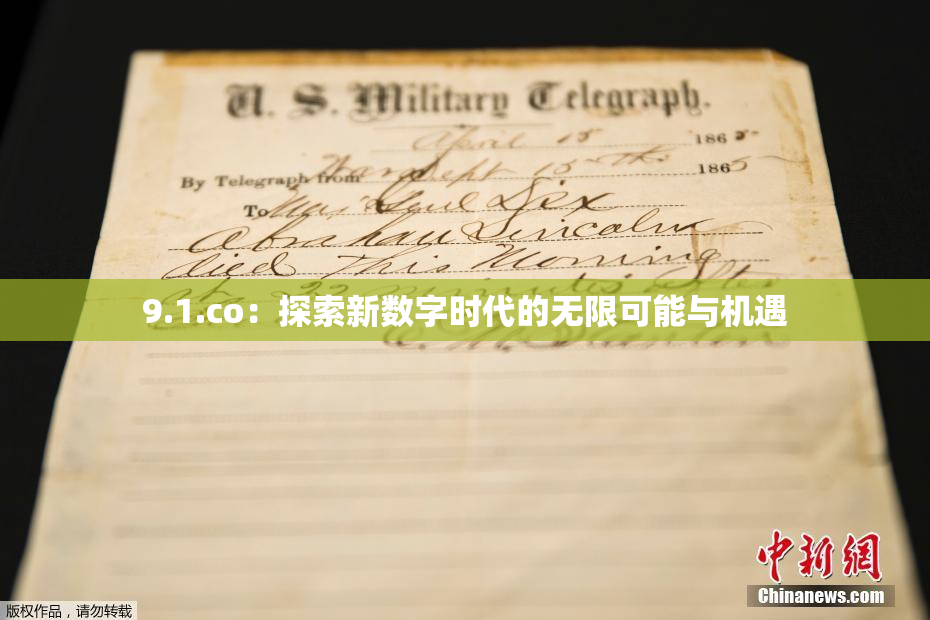 U. S. Military Telegraph.
April 15 1865
By Telegraph from War Dept 15th 1865
To Maj Genl Dix
Abraham Lincoln
died This Morning
at 22 minutes after
9.1.co：探索新数字时代的无限可能与机遇
E. M. Stanton
中新网
Chinanews.com
版权作品，请勿转载